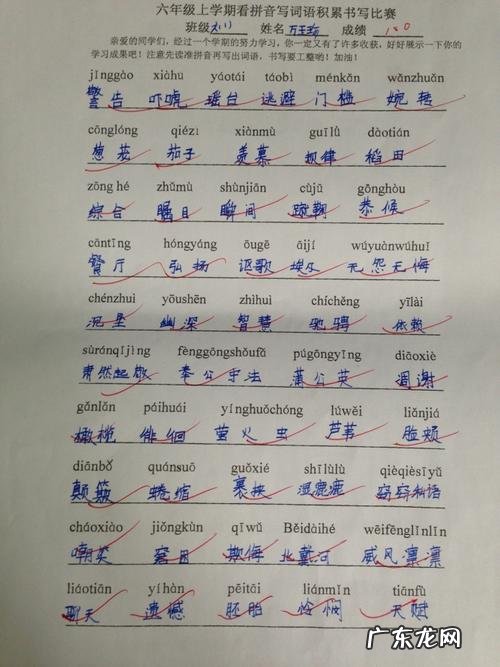 六年级上学期看拼音写词语积累书写比赛
班级 六(1) 姓名 成绩 100
亲爱的同学们，经过一个学期的努力学习，你一定又有了许多收获，好好展示一下你的
学习成果吧！注意先读准拼音再写出词语，书写要工整哟！加油！
jǐnggào xiàhu yáotái táobì ménkǎn wǎnzhuǎn
警告 吓唬 瑶台 逃避 门槛 婉转
cōnglóng qiézi xiànmù guīlǜ dàotián
葱茏 茄子 羡慕 规律 稻田
zōng hé zhǔmù shùnjiān cùjū gōnghòu
综合 瞩目 瞬间 蹴鞠 恭候
cāntīng hóngyáng ōugē āijí wúyuànwúhuǐ
餐厅 弘扬 讴歌 埃及 无怨无悔
chénzhuì yōushēn zhìhuì chíchěng yīlài
沉坠 幽深 智慧 驰骋 依赖
sùránqǐjìng fènggōngshǒufǎ púgōngyīng diāoxiè
肃然起敬 奉公守法 蒲公英 凋谢
gǎnlǎn páihuái yínghuǒchóng lúwěi liǎnjiá
橄榄 徘徊 萤火虫 芦苇 脸颊
diānbǒ quánsuō guǒxié shīlùlù qièqièsīyǔ
颠簸 蜷缩 裹挟 湿漉漉 窃窃私语
cháoxiào jiǒngkùn qīwǔ Běidàihé wēifēnglǐnlǐn
嘲笑 窘困 欺侮 北戴河 威风凛凛
liáotiān yíhàn pēitāi liánmǐn tiānfù
聊天 遗憾 胚胎 怜悯 天赋
广东龙网